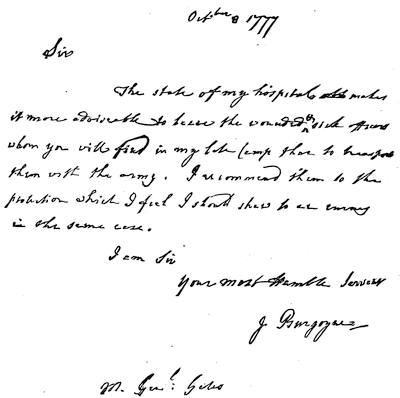 Octber 8 1777
Sir
The state of my hospitals makes
it more adviseable to leave the wounded & sick officers
whom you will find in my late Camp than to transport
them with the army. I recommend them to the
protection which I feel I should shew to an enemy
in the same case.
I am Sir
Your most Humble Servant
J Burgoyne
M. Genl: Gates